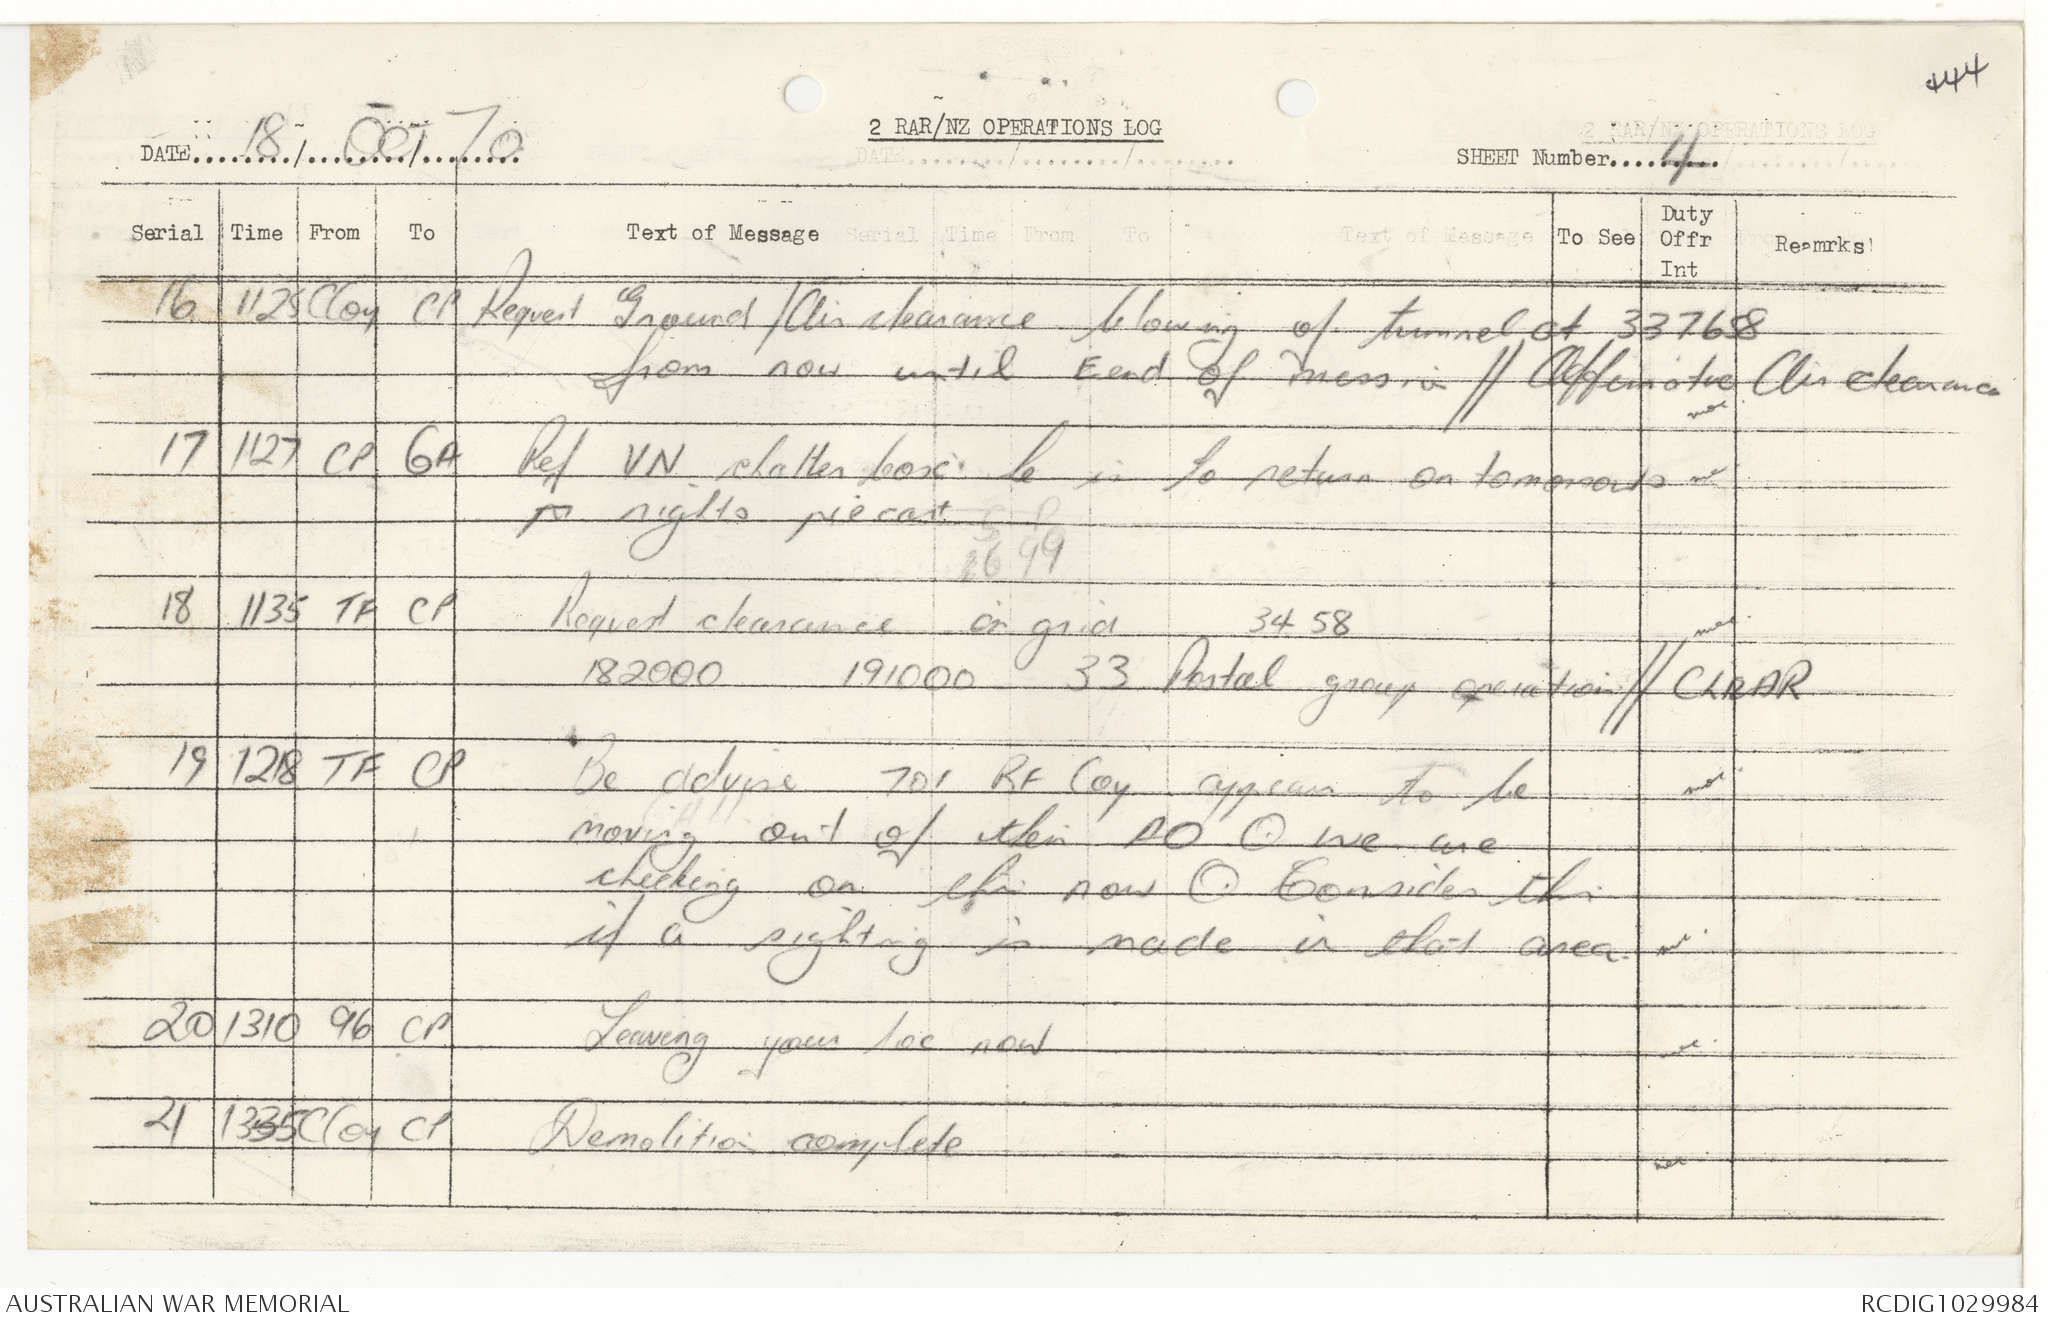 444
2 RAR/NZ OPERATIONS LOG
DATE 18 / Oct / 70
SHEET Number 4
Serial Time From To Text of Message To See Duty Offr Int Reamrks
16 1125 C Coy CP Request Ground/Air clearance blowing of tunnel at 337658
from now until End of mission // Affirmative Air clearance
17 1127 CP 6A Ref VN chatter box: he is to return on tomorrows
nights piecart
S P
26 99
18 1135 TF CP Request clearance in grid 34 58
182000 191000 33 Postal group operation // CLEAR
19 1218 TF CP Be advise 701 RF Coy appears to be
moving out of their AO ⊙ we are
checking on this now ⊙ Consider this
if a sighting is made in that area.
20 1310 96 CP Leaving your loc now
21 1335 C Coy CP Demolition complete
AUSTRALIAN WAR MEMORIAL
RCDIG1029984